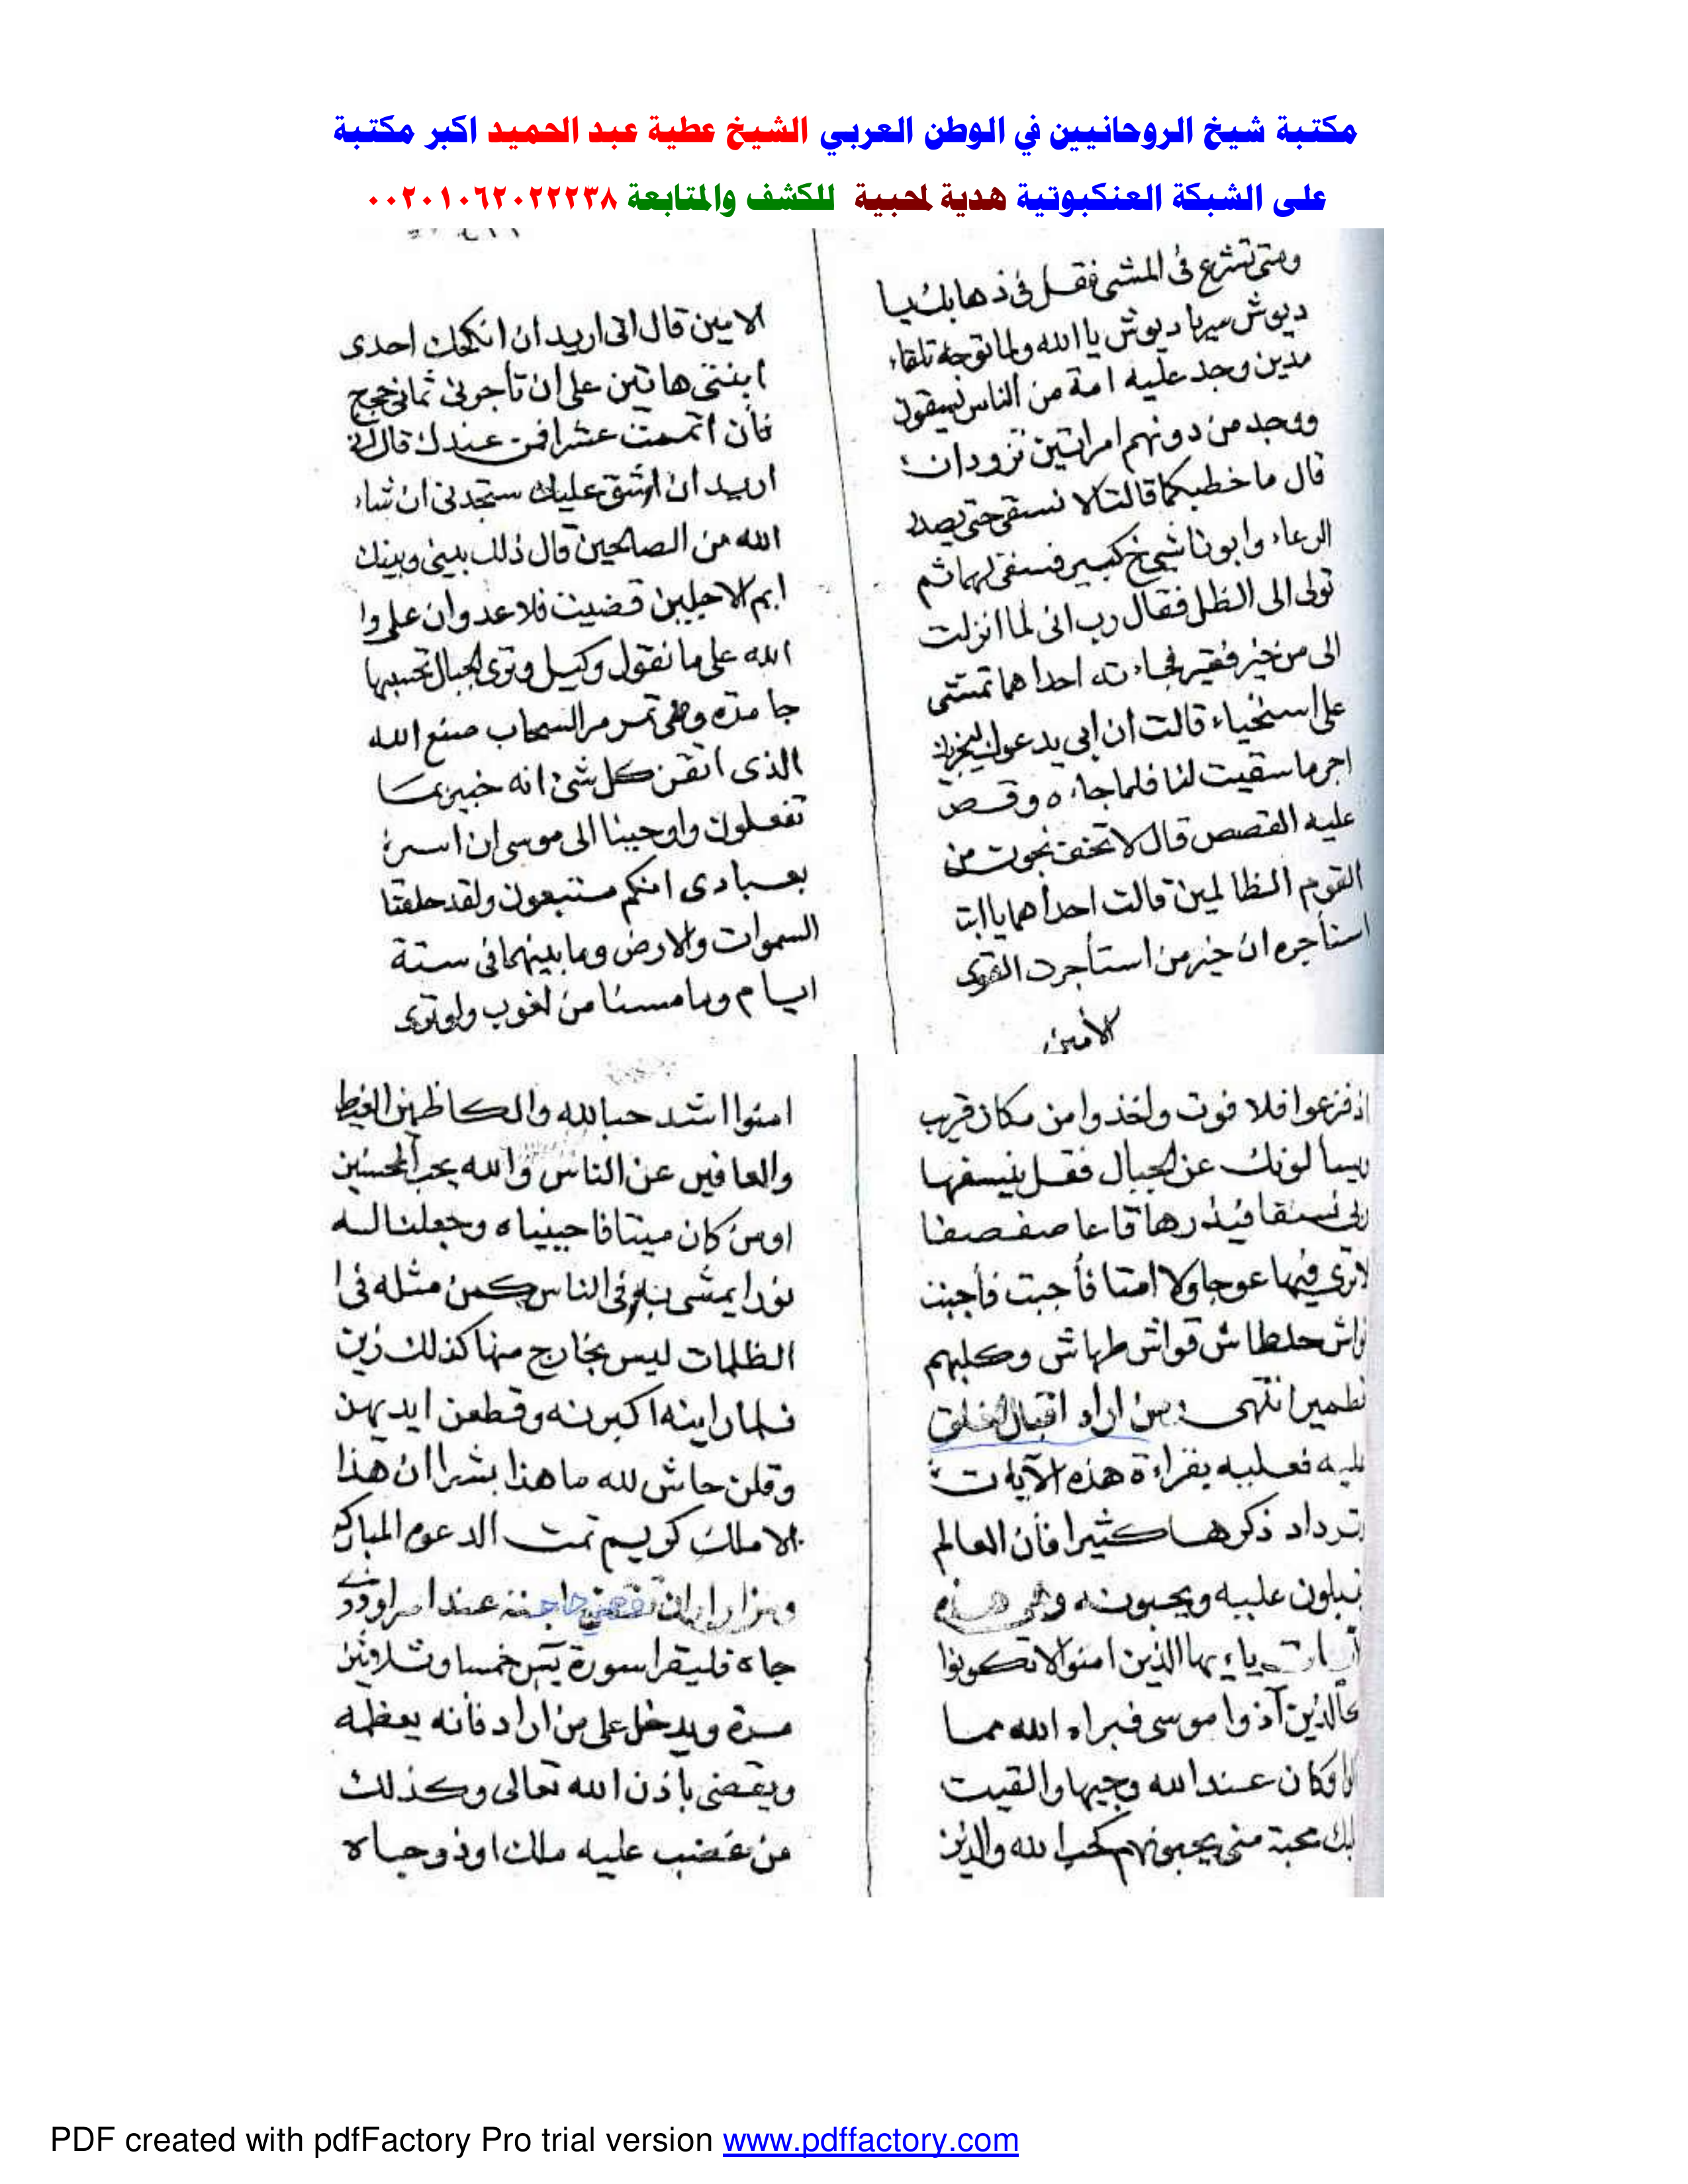 مكتبة شيخ الروحانيين في الوطن العربي الشيخ عطية عبد الحميد اكبر مكتبة
على الشبكة العنكبوتية هدية لمحبية للكشف والمتابعة ٠٠٢٠١٠٦٢٠٢٢٢٣٨
ومتى تشرع فى المشى فقل فى ذهابك يا
ديوش سيربا ديوش يا الله ولما توجه تلقاء
مدين وجد عليه امة من الناس يسقون
ووجد من دونهم امراتين تزودان
قال ما خطبكما قالتا لا نسقى حتى يصدر
الرعاء وابونا شيخ كبير فسقى لهما ثم
تولى الى الظل فقال رب انى لما انزلت
الى من خير فقير فجاءته احداهما تمشى
على استحياء قالت ان ابى يدعوك ليجزيك
اجر ما سقيت لنا فلما جاءه وقص
عليه القصص قال لا تخف نجوت من
القوم الظالمين قالت احداهما يا ابت
استأجره ان خير من استأجرت القوى
الأمين
الامين قال انى اريد ان انكحك احدى
ابنتى هاتين على ان تأجرنى ثمانى حجج
فأن اتممت عشرا فمن عندك قال
اريد ان اشق عليك ستجدنى ان شاء
الله من الصالحين قال ذلك بينى وبينك
ايم الاجلين قضيت فلا عدوان على وا
الله على ما نقول وكيل وترى الجبال تحسبها
جامدة وهى تمر مر السحاب صنع الله
الذى اتقن كل شئ انه خبير بما
تفعلون واوحينا الى موسى ان اسر
بعبادى انكم متبعون ولقد خلقنا
السموات والارض وما بينهما فى ستة
ايام وما مسنا من لغوب ولو ترى
اذ فزعوا فلا فوت واخذوا من مكان قريب
ويسالونك عن الجبال فقل ينسفها
ربى نسفا فيذرها قاعا صفصفا
لا ترى فيها عوجا ولا امتا فأجبت فأجبت
نواش حلطاش قواش طهاش وكلبهم
قطمير انتهى ومن اراد اقبال الخلق
عليه فعليه بقراءة هذه الآيات
وترداد ذكرها كثيرا فأن العالم
يقبلون عليه ويحبونه وهى هذه
يا ايها الذين امنوا لا تكونوا
كالذين آذوا موسى فبراه الله مما
قالوا وكان عند الله وجيها والقيت
عليك محبة منى يحبونهم كحب الله والذين
امنوا اشد حبا لله والكاظمين الغيظ
والعافين عن الناس والله يحب المحسنين
اومن كان ميتا فاحييناه وجعلنا له
نورا يمشى به فى الناس كمن مثله فى ا
الظلمات ليس بخارج منها كذلك زين
فلما راينه اكبرنه وقطعن ايديهن
وقلن حاش لله ما هذا بشرا ان هذا
الا ملك كريم تمت الدعوه المباركه
ومن اراد ان تقضى حاجته عند امير او ذى
جاه فليقرا سورة يس خمسا وثلاثين
مرة ويدخل على من اراد فأنه يعظمه
ويقضى باذن الله تعالى وكذلك
من غضب عليه ملك او ذو جاه
PDF created with pdfFactory Pro trial version www.pdffactory.com